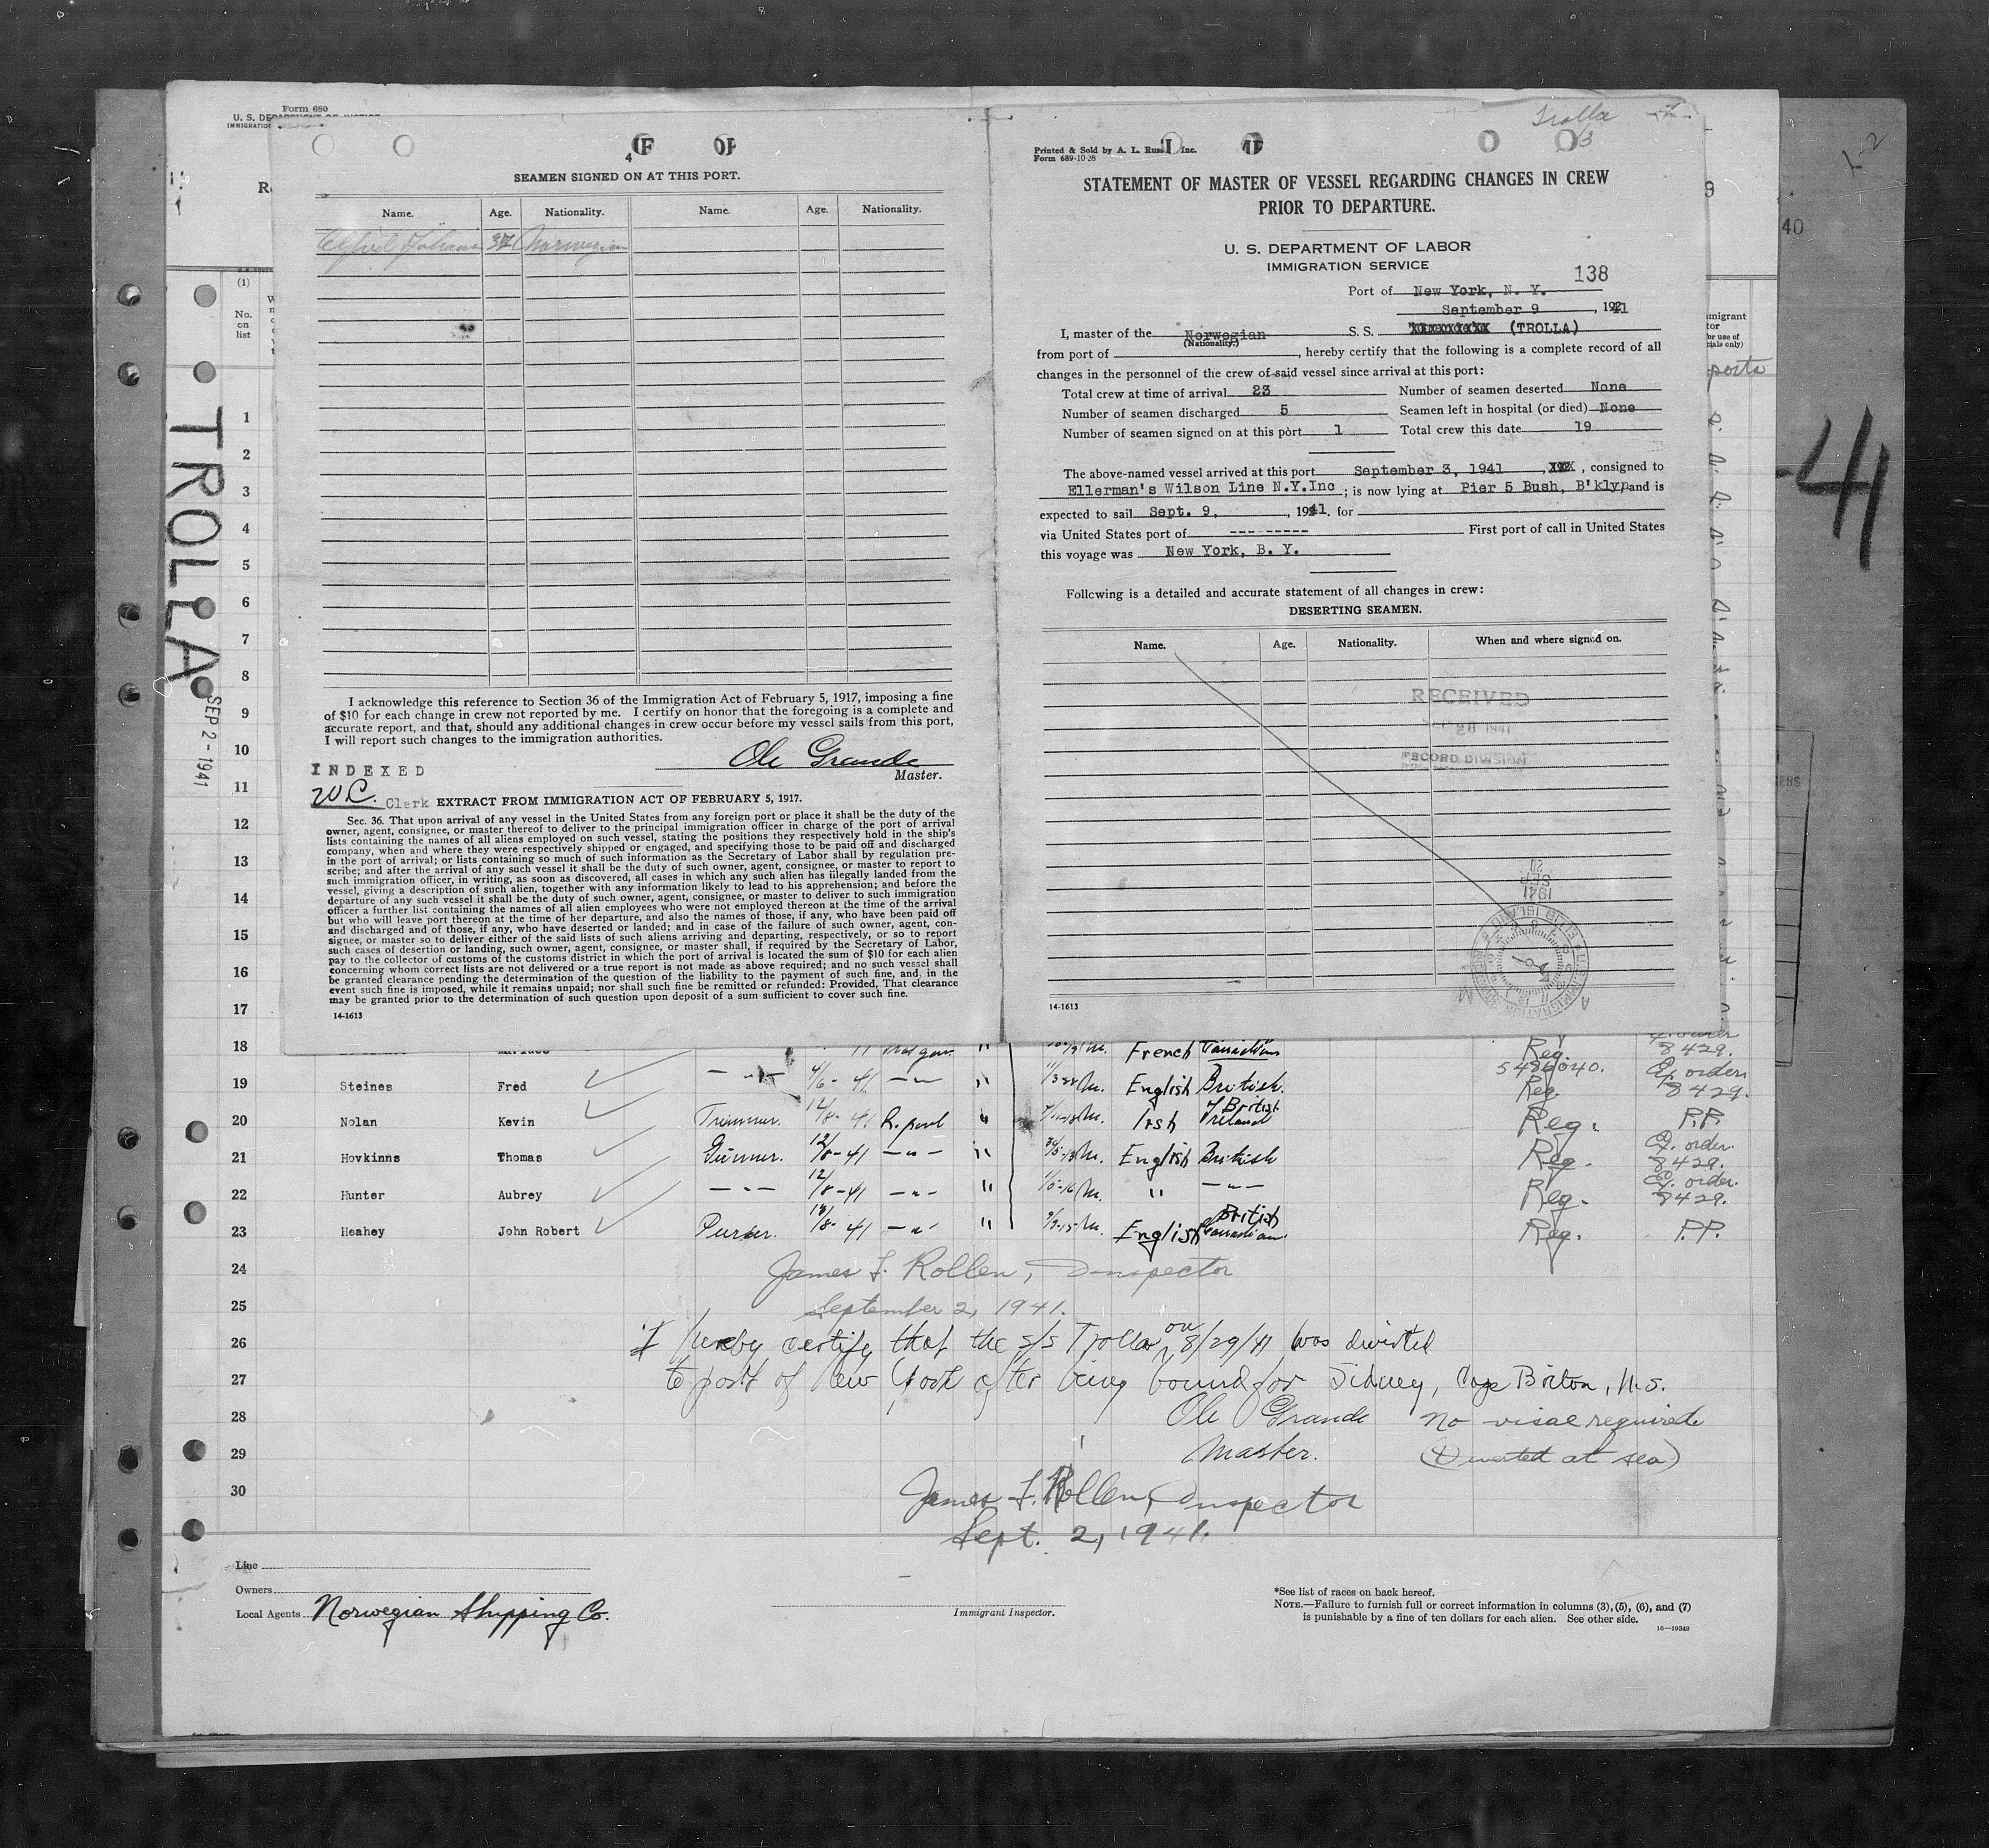 Form 689
U. S. DEPARTMENT OF JUSTICE
IMMIGRATION
(1)
No.
on
list
TROLLA
SEP 2 - 1941
4
SEAMEN SIGNED ON AT THIS PORT.
Name. Age. Nationality. Name. Age. Nationality.
Alfred Norwegian
I acknowledge this reference to Section 36 of the Immigration Act of February 5, 1917, imposing a fine
of $10 for each change in crew not reported by me. I certify on honor that the foregoing is a complete and
accurate report, and that, should any additional changes in crew occur before my vessel sails from this port,
I will report such changes to the immigration authorities.
Ole Grande
Master.
INDEXED
W.C. Clerk
EXTRACT FROM IMMIGRATION ACT OF FEBRUARY 5, 1917.
Sec. 36. That upon arrival of any vessel in the United States from any foreign port or place it shall be the duty of the
owner, agent, consignee, or master thereof to deliver to the principal immigration officer in charge of the port of arrival
lists containing the names of all aliens employed on such vessel, stating the positions they respectively hold in the ship's
company, when and where they were respectively shipped or engaged, and specifying those to be paid off and discharged
in the port of arrival; or lists containing so much of such information as the Secretary of Labor shall by regulation pre-
scribe; and after the arrival of any such vessel it shall be the duty of such owner, agent, consignee, or master to report to
such immigration officer, in writing, as soon as discovered, all cases in which any such alien has illegally landed from the
vessel, giving a description of such alien, together with any information likely to lead to his apprehension; and before the
departure of any such vessel it shall be the duty of such owner, agent, consignee, or master to deliver to such immigration
officer a further list containing the names of all alien employees who were not employed thereon at the time of the arrival
but who will leave port thereon at the time of her departure, and also the names of those, if any, who have been paid off
and discharged and of those, if any, who have deserted or landed; and in case of the failure of such owner, agent, con-
signee, or master so to deliver either of the said lists of such aliens arriving and departing, respectively, or so to report
such cases of desertion or landing, such owner, agent, consignee, or master shall, if required by the Secretary of Labor,
pay to the collector of customs of the customs district in which the port of arrival is located the sum of $10 for each alien
concerning whom correct lists are not delivered or a true report is not made as above required; and no such vessel shall
be granted clearance pending the determination of the question of the liability to the payment of such fine, and, in the
event such fine is imposed, while it remains unpaid; nor shall such fine be remitted or refunded: Provided, That clearance
may be granted prior to the determination of such question upon deposit of a sum sufficient to cover such fine.
14-1613
Trolla
3
Printed & Sold by A. L. Russ Inc.
Form 689-10-28
STATEMENT OF MASTER OF VESSEL REGARDING CHANGES IN CREW
PRIOR TO DEPARTURE.
U. S. DEPARTMENT OF LABOR
IMMIGRATION SERVICE
138
Port of New York, N. Y.
September 9, 1941
I, master of the Norwegian S. S. XXXXXXXXX (TROLLA)
(Nationality.)
from port of , hereby certify that the following is a complete record of all
changes in the personnel of the crew of said vessel since arrival at this port:
Total crew at time of arrival 23 Number of seamen deserted None
Number of seamen discharged 5 Seamen left in hospital (or died) None
Number of seamen signed on at this port 1 Total crew this date 19
The above-named vessel arrived at this port September 3, 1941, XXX, consigned to
Ellerman's Wilson Line N.Y.Inc; is now lying at Pier 5 Bush, B'klyn and is
expected to sail Sept. 9, , 1941. for
via United States port of --- ----- First port of call in United States
this voyage was New York, B. Y.
Following is a detailed and accurate statement of all changes in crew:
DESERTING SEAMEN.
Name. Age. Nationality. When and where signed on.
RECEIVED
SEP 20 1941
RECORD DIVISION
1941
SEP
20
U.S. IMMIGRATION
ELLIS ISLAND
14-1613
40
1-2
-41
1
2
3
4
5
6
7
8
9
10
11
12
13
14
15
16
17
18 French Canadian Reg. 8429.
19 Steines Fred 4/6-41 English British. 5486040. Reg. Ex. order 8429.
20 Nolan Kevin Trimmer. 12/8-41 Irsh British Ireland Reg. P.P.
21 Hovkinns Thomas Gunner. 12/8-41 -"- " English British Reg. Ex. order. 8429.
22 Hunter Aubrey -"- 12/8-41 -"- " " -"- Reg. Ex. order. 8429.
23 Heahey John Robert 12/8-41 -"- " English British Canadian. Reg. P.P.
24 James F. Rollen, Inspector
25 September 2, 1941.
26 I hereby certify that the s/s Trolla on 8/29/41 was diverted
27 to port of New York after being bound for Sidney, Cape Briton, N.S.
28 Ole Grande No visa required
29 Master. (Diverted at sea)
30 James F. Rollen, Inspector
Sept. 2, 1941.
Line
Owners
Local Agents Norwegian Shipping Co.
Immigrant Inspector.
*See list of races on back hereof.
NOTE.—Failure to furnish full or correct information in columns (3), (5), (6), and (7)
is punishable by a fine of ten dollars for each alien. See other side.
16—19349